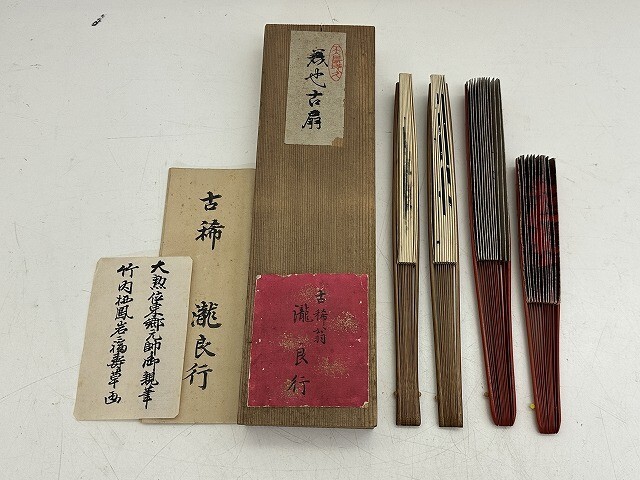 也古扇
古稀翁
瀧良行
古稀
瀧良行
大勲位東郷元帥御親筆
竹内栖鳳岩福寿草画